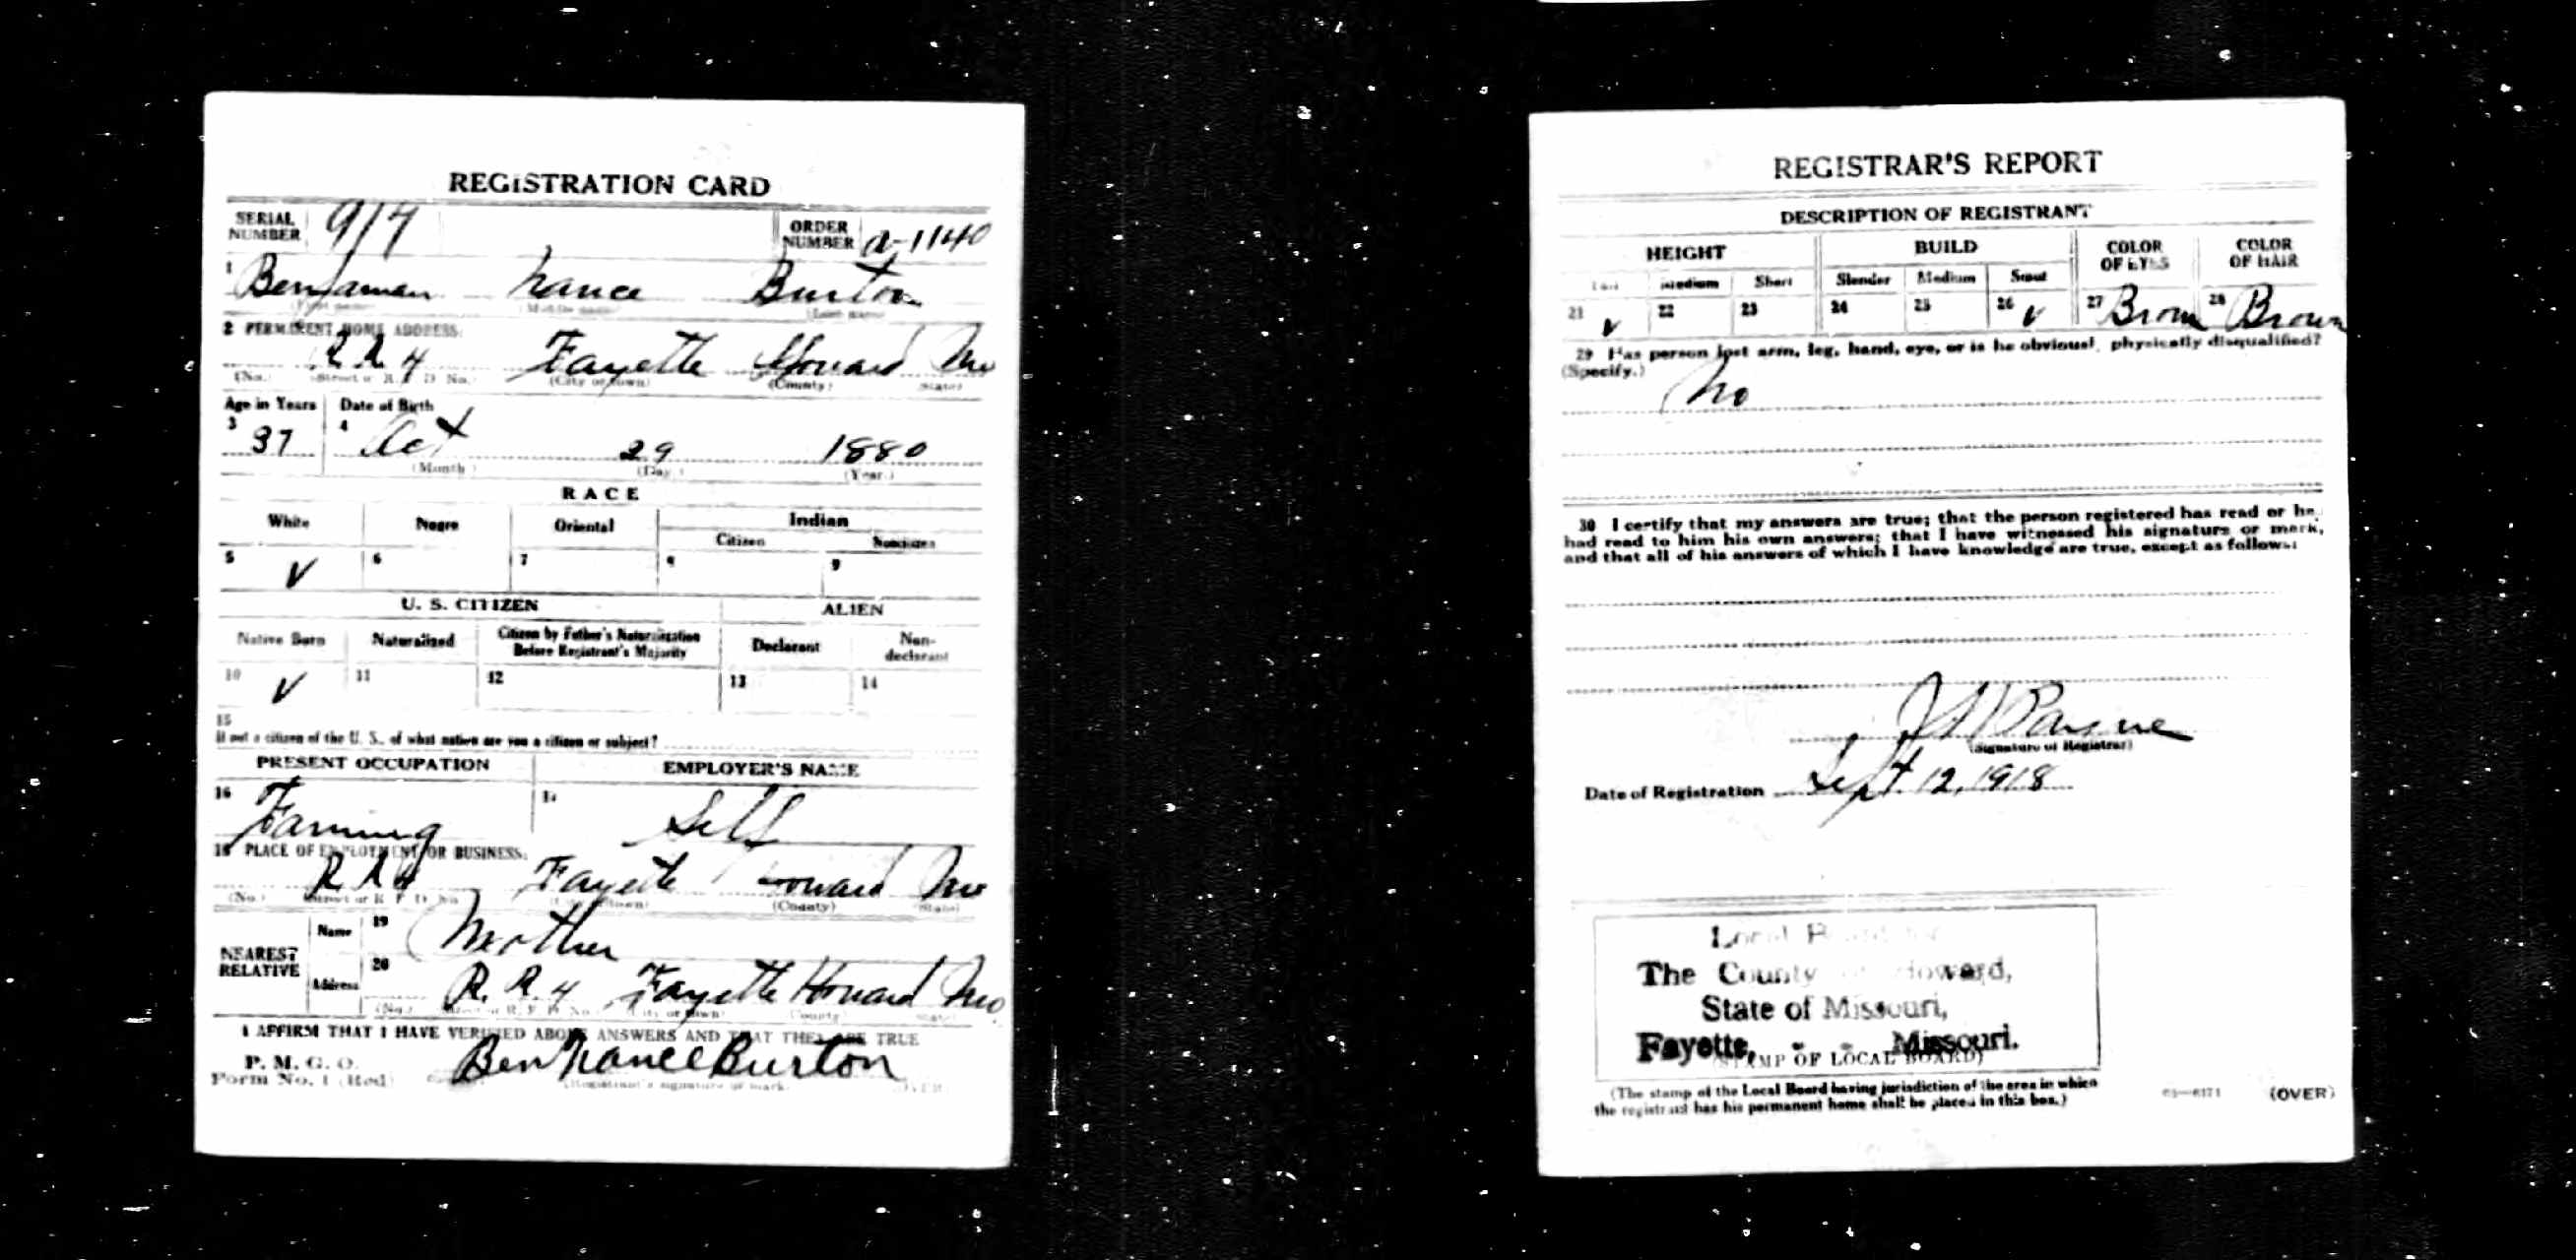 REGISTRATION CARD
SERIAL NUMBER 917 ORDER NUMBER a-1140
1 Benjamen Nance Burton
(First name) (Middle name) (Last name)
2 PERMANENT HOME ADDRESS:
R R 4 Fayette Howard Mo
(No.) (Street or R. F. D. No.) (City or town) (County) (State)
Age in Years Date of Birth
3 37 4 Oct 29 1880
(Month) (Day.) (Year.)
RACE
White Negro Oriental Indian
Citizen Noncitizen
5 V 6 7 8 9
U. S. CITIZEN ALIEN
Native Born Naturalized Citizen by Father's Naturalization Before Registrant's Majority Declarant Non-declarant
10 V 11 12 13 14
15
If not a citizen of the U. S., of what nation are you a citizen or subject?
PRESENT OCCUPATION EMPLOYER'S NAME
16 Farming 17 Self
18 PLACE OF EMPLOYMENT OR BUSINESS:
R R 4 Fayette Howard Mo
(No.) (Street or R. F. D. No.) (City or town) (County) (State)
NEAREST RELATIVE
Name 19 Mother
Address 20 R. R. 4 Fayette Howard Mo
(No.) (Street or R. F. D. No.) (City or town) (County) (State)
I AFFIRM THAT I HAVE VERIFIED ABOVE ANSWERS AND THAT THEY ARE TRUE
P. M. G. O.
Form No. 1 (Red) Ben Nance Burton
(Registrant's signature or mark) (OVER)
REGISTRAR'S REPORT
DESCRIPTION OF REGISTRANT
HEIGHT BUILD COLOR OF EYES COLOR OF HAIR
Tall Medium Short Slender Medium Stout
21 V 22 23 24 25 26 V 27 Brown 28 Brown
29 Has person lost arm, leg, hand, eye, or is he obviously physically disqualified?
(Specify.) No
30 I certify that my answers are true; that the person registered has read or has
had read to him his own answers; that I have witnessed his signature or mark,
and that all of his answers of which I have knowledge are true, except as follows:
(Signature of Registrar)
Date of Registration Sept. 12, 1918
Local Board for
The County of Howard,
State of Missouri,
Fayette, - - Missouri.
(STAMP OF LOCAL BOARD)
(The stamp of the Local Board having jurisdiction of the area in which
the registrant has his permanent home shall be placed in this box.)
03—6171 (OVER)